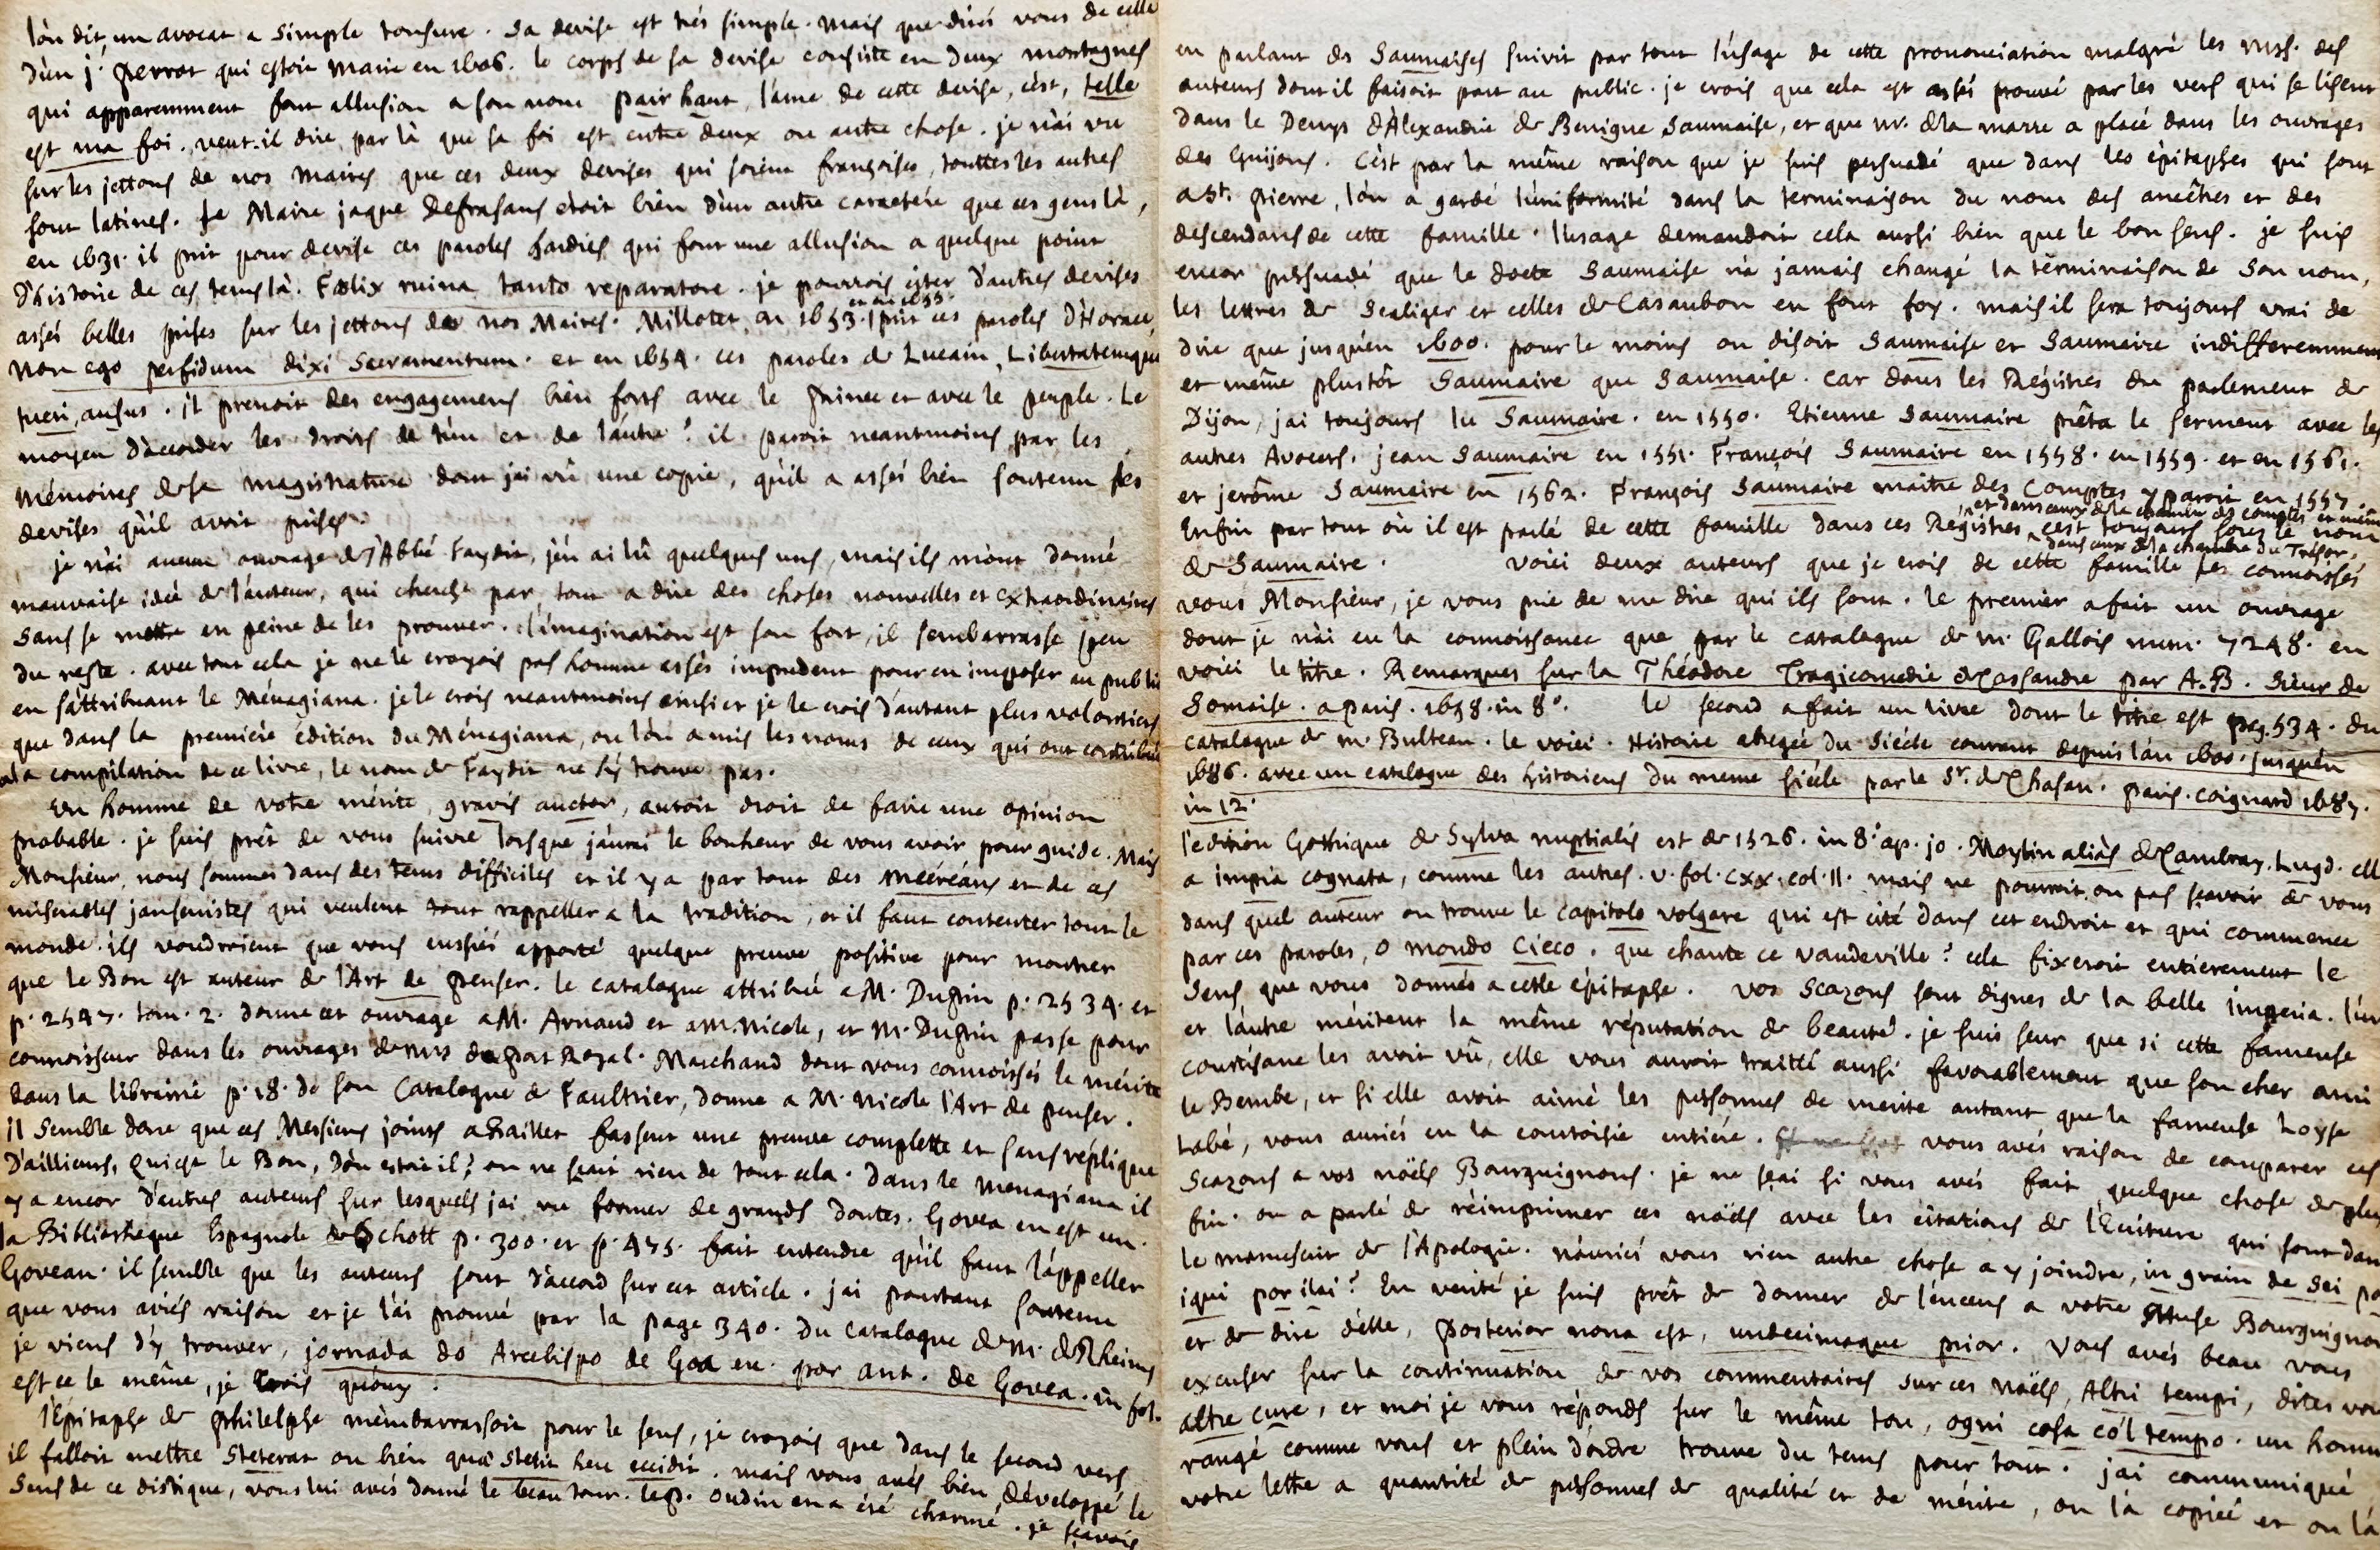 l'on dit, un avocat a simple tonsure. sa devise est trés simple. mais que dirés vous de celle
d'un j. Perrot qui estoit maire en 1606. le corps de sa devise consiste en deux montagnes
qui apparemment font allusion a son nom pair haut, l'ame de cette devise, c'est, telle
est ma foi. veut-il dire par là que sa foi est entre deux ou autre chose. je n'ai vu
sur les jettons de nos maires que ces deux devises qui soient françoises, touttes les autres
sont latines. le Maire jaque Defrasans étoit bien d'un autre caractére que ces gens là,
en 1631. il prit pour devise ces paroles hardies qui font une allusion a quelque point
d'histoire de ces tems là. Fœlix ruina tanto reparatore. je pourrois citer d'autres devises
assés belles prises sur les jettons de nos Maires. Millotet en 1653. prit ces paroles d'Horace,
non ego perfidum dixi sacramentum. et en 1654. ces paroles de Lucain, Libertatemque
tueri, ausus. il prenoit des engagemens bien forts avec le Prince et avec le peuple. Le
moyen d'accorder les droits de l'un et de l'autre? il paroit neantmoins par les
mémoires de sa magistrature dont j'ai vû une copie, qu'il a assés bien soutenu les
devises qu'il avoit prises.
je n'ai aucun ouvrage de l'Abbé Faydit, j'en ai lû quelques uns, mais ils m'ont donné
mauvaise idée de l'auteur, qui cherche par tout a dire des choses nouvelles et extraordinaires
sans se mettre en peine de les prouver. l'imagination est son fort, il s'embarrasse peu
du reste. avec tout cela je ne le croyois pas homme assés imprudent pour en imposer au public
en s'attribuant le Ménagiana. je le crois neantmoins ainsi et je le crois d'autant plus volontiers
que dans la premiére édition du Ménagiana, ou l'on a mis les noms de ceux qui ont contribué
a la compilation de ce livre, le nom de Faydit ne s'y trouve pas.
Un homme de votre mérite, gravis auctor, auroit droit de faire une opinion
probable. je suis prêt de vous suivre lorsque j'aurai le bonheur de vous avoir pour guide. Mais
Monsieur, nous sommes dans des tems difficiles et il y a par tout des mécréans et de ces
miserables jansenistes qui veulent tout rappeller a la tradition, et il faut contenter tout le
monde. ils voudroient que vous eussiés apporté quelque preuve positive pour montrer
que le Bon est auteur de l'Art de penser. le catalogue attribué a M. Dupin p. 2534. et
p. 2547. tom. 2. donne cet ouvrage a M. Arnaud et a M. Nicole, et M. Dupin passe pour
connoisseur dans les ouvrages de mrs de Port Royal. Marchand dont vous connoissés le mérite
dans la librairie p. 18. de son Catalogue de Faultrier, donne a M. Nicole l'Art de penser.
il semble donc que ces Messieurs joints a Baillet fassent une preuve complette et sans réplique
D'ailleurs, qui est le Bon, d'où estoit il? on ne sçait rien de tout cela. Dans le menagiana il
y a encor d'autres auteurs sur lesquels j'ai vu former de grands doutes. Govea en est un.
la Bibliotheque Espagnole de Schott p. 300. et p. 475. fait entendre qu'il faut l'appeller
Govean. il semble que les auteurs sont d'accord sur cet article. j'ai pourtant soutenu
que vous aviés raison et je l'ai prouvé par la page 340. du catalogue de M. de Rheims
je viens d'y trouver, jornada do Arcebispo de Goa en. por ant. de Govea. in fol.
est ce le même, je crois qu'ouy.
l'Epitaphe de Philelphe m'embarrassoit pour le sens, je croyois que dans le second vers
il falloit mettre steterat ou bien quæ stetit heu occidit. mais vous avés bien développé le
sens de ce distique, vous lui avés donné le beau tour. le P. Oudin en a été charmé. je sçavois
en parlant des Saumaises suivit par tout l'usage de cette prononciation malgré les mss. des
auteurs dont il faisoit part au public. je crois que cela est assés prouvé par les vers qui se lisent
dans le Denys d'Alexandrie de Benigne Saumaise, et que mr. de la marre a placé dans les ouvrages
des Guijons. C'est par la même raison que je suis persuadé que dans les épitaphes qui sont
a St. Pierre, l'on a gardé l'uniformité dans la terminaison du nom des ancêtres et des
descendans de cette famille. l'usage demandoit cela aussi bien que le bon sens. je suis
encor persuadé que le docte Saumaise n'a jamais changé la terminaison de son nom,
les lettres de Scaliger et celles de Casaubon en font foy. mais il sera toujours vrai de
dire que jusqu'en 1600. pour le moins on disoit Saumaise et Saumaire indifferemment
et même plustôt Saumaire que Saumaise. car dans les Régistres du parlement de
Dijon, j'ai toujours lu Saumaire. en 1550. Etienne Saumaire prêta le serment avec les
autres Avocats. jean Saumaire en 1551. François Saumaire en 1558. en 1559. et en 1561.
et jerôme Saumaire en 1562. François Saumaire maitre des Comptes y paroit en 1557.
Enfin par tout où il est parlé de cette famille dans ces Régistres et dans ceux de la chambre des comptes et même dans ceux de la chambre du Trésor, c'est toujours sous le nom
de Saumaire. voici deux auteurs que je crois de cette famille les connoissés
vous Monsieur, je vous prie de me dire qui ils sont. le premier a fait un ouvrage
dont je n'ai eu la connoissance que par le catalogue de m. Gallois num. 7248. en
voici le titre. Remarques sur la Théodore Tragicomedie de Cassandre par A.B. Sieur de
Somaise. a paris. 1658. in 8°. le second a fait un livre dont le titre est pag. 534. du
catalogue de m. Bulteau. le voici. Histoire abregée du siécle courant depuis l'an 1600. jusqu'en
1686. avec un catalogue des historiens du meme siécle par le Sr. de Chasan. paris. coignard 1687.
in 12.
l'edition Gothique de Sylva nuptialis est de 1526. in 8° ap. jo. Moylin aliàs de Cambray. Lugd. elle
a impia cognata, comme les autres. v. fol. cxx. col. II. mais ne pourroit on pas sçavoir de vous
dans quel auteur on trouve le capitolo volgare qui est cité dans cet endroit et qui commence
par ces paroles, O mondo cieco. que chante ce vaudeville? cela fixeroit entierement le
sens que vous donnés a cette épitaphe. vos scazons sont dignes de la belle Imperia. l'un
et l'autre méritent la même réputation de beauté. je suis seur que si cette fameuse
courtisane les avoit vû, elle vous auroit traitté aussi favorablement que son cher ami
le Bembe, et si elle avoit aimé les personnes de merite autant que la fameuse Loyse
Labé, vous auriés eu la courtoisie entiére. vous avés raison de comparer ces
scazons a vos noëls Bourguignons. je ne sçai si vous avés fait quelque chose de plus
fin. on a parlé de réimprimer ces noëls avec les citations de l'Ecriture qui sont dans
le manuscrit de l'Apologie. n'auriés vous rien autre chose a y joindre, in grain de sei po
iqui por ilai? En verité je suis prêt de donner de l'encens a votre Muse Bourguignone
et de dire d'elle, Posterior nona est, undecimaque prior. Vous avés beau vous
excuser sur la continuation de vos commentaires sur ces noëls, Altri tempi, dites vous
altre cure, et moi je vous réponds sur le même ton, ogni cosa co'l tempo. un homme
rangé comme vous et plein d'ordre trouve du tems pour tout. j'ai communiqué
votre lettre a quantité de personnes de qualité et de mérite, on l'a copiée et on l'a